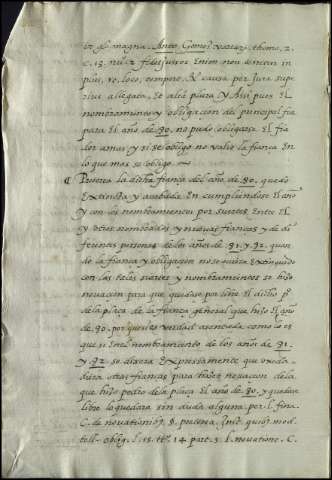 magna. Anto. Gomez tomo. 2.
C. 13. nu. 2 fidejussores Enim non tenentur in
plus, re, loco, tempore, & causa per Jura supe
rius allegata, et alia plura y Assi pues el
nombramiento y obligacion del principal fue
para El año de 90. no pudo obligarse El fia
dor a mas y si se obligo no valio la fiança En
lo que mas se obligo
Porque la dicha fiança del año de 90. quedo
Extincta y acabada En cumpliendose El año
y con los nombramientos por suertes Entre El
y otros nombrados y nuevas fianças y de di
ferentes personas de los años de 91. y 92. quan
do la fiança y obligaçion no se oviera extinguido
con las tales suertes y nombramientos se hizo
novacion para que quedase por libre El dicho p.o
de la plaça de la fiança general que hizo El año
de 90. porque si es verdad asentada como lo es
que si En el nombramiento de los años de 91.
y 92. se dixera Expresamente que
otras fianças para hazer novacion de la
que hizo pedro de la plaça El año de 90. y quedara
libre lo quedara sin duda alguna per l. fina.
C. de novationi. §. preterea Inst. quibus modis
toll. oblig. l. 15. tit. 14 part. 5. l. novatione. C.